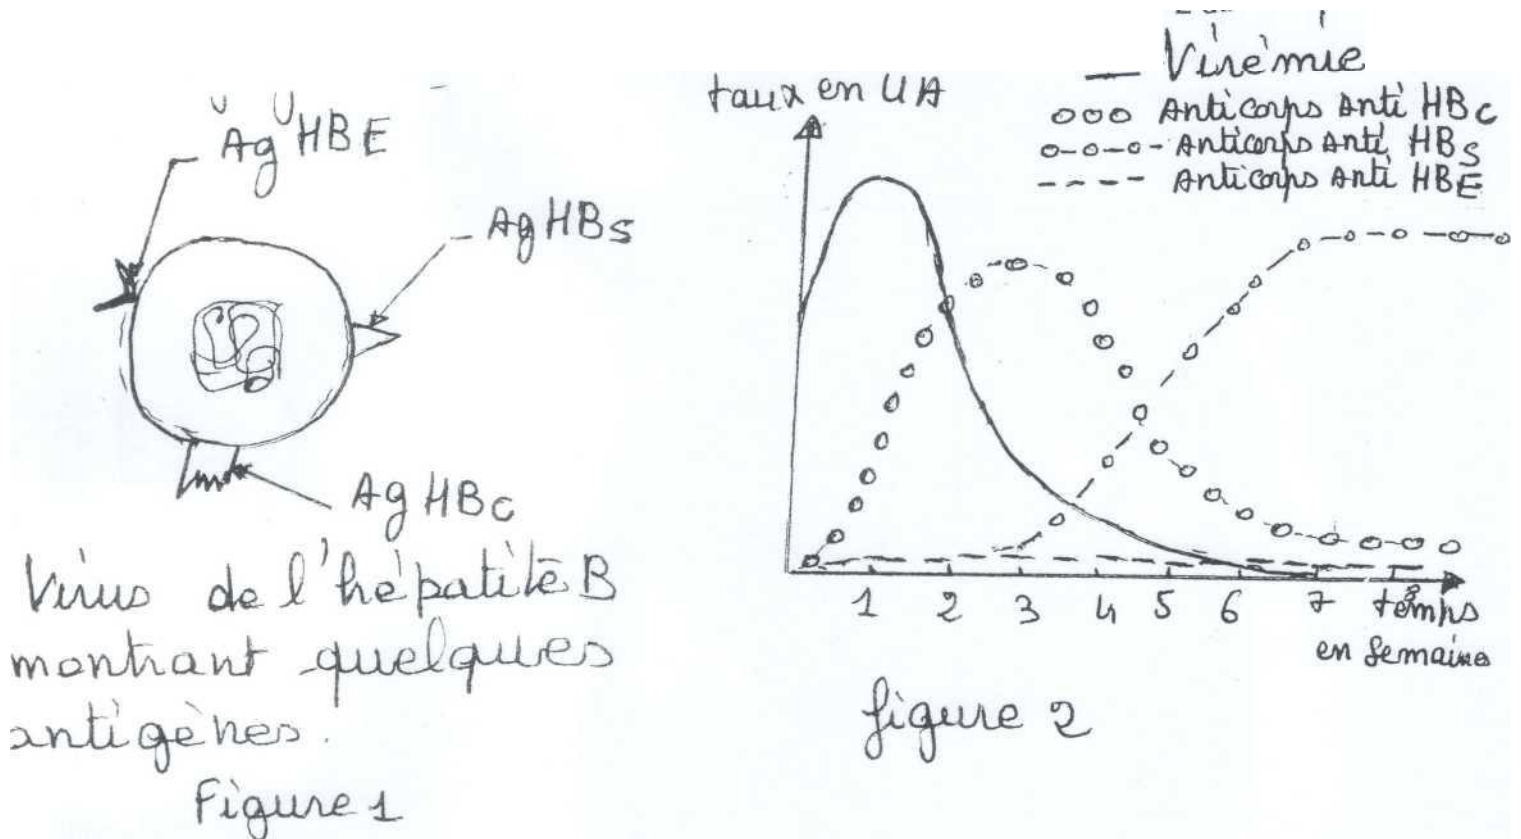 Ag HBE
Ag HBs
Ag HBc
Virus de l'hépatite B
montrant quelques
antigènes.
Figure 1
taux en UA
Virémie
Anticorps Anti HBc
Anticorps Anti HBs
Anticorps Anti HBE
1 2 3 4 5 6 7 8 temps
en semaines
figure 2